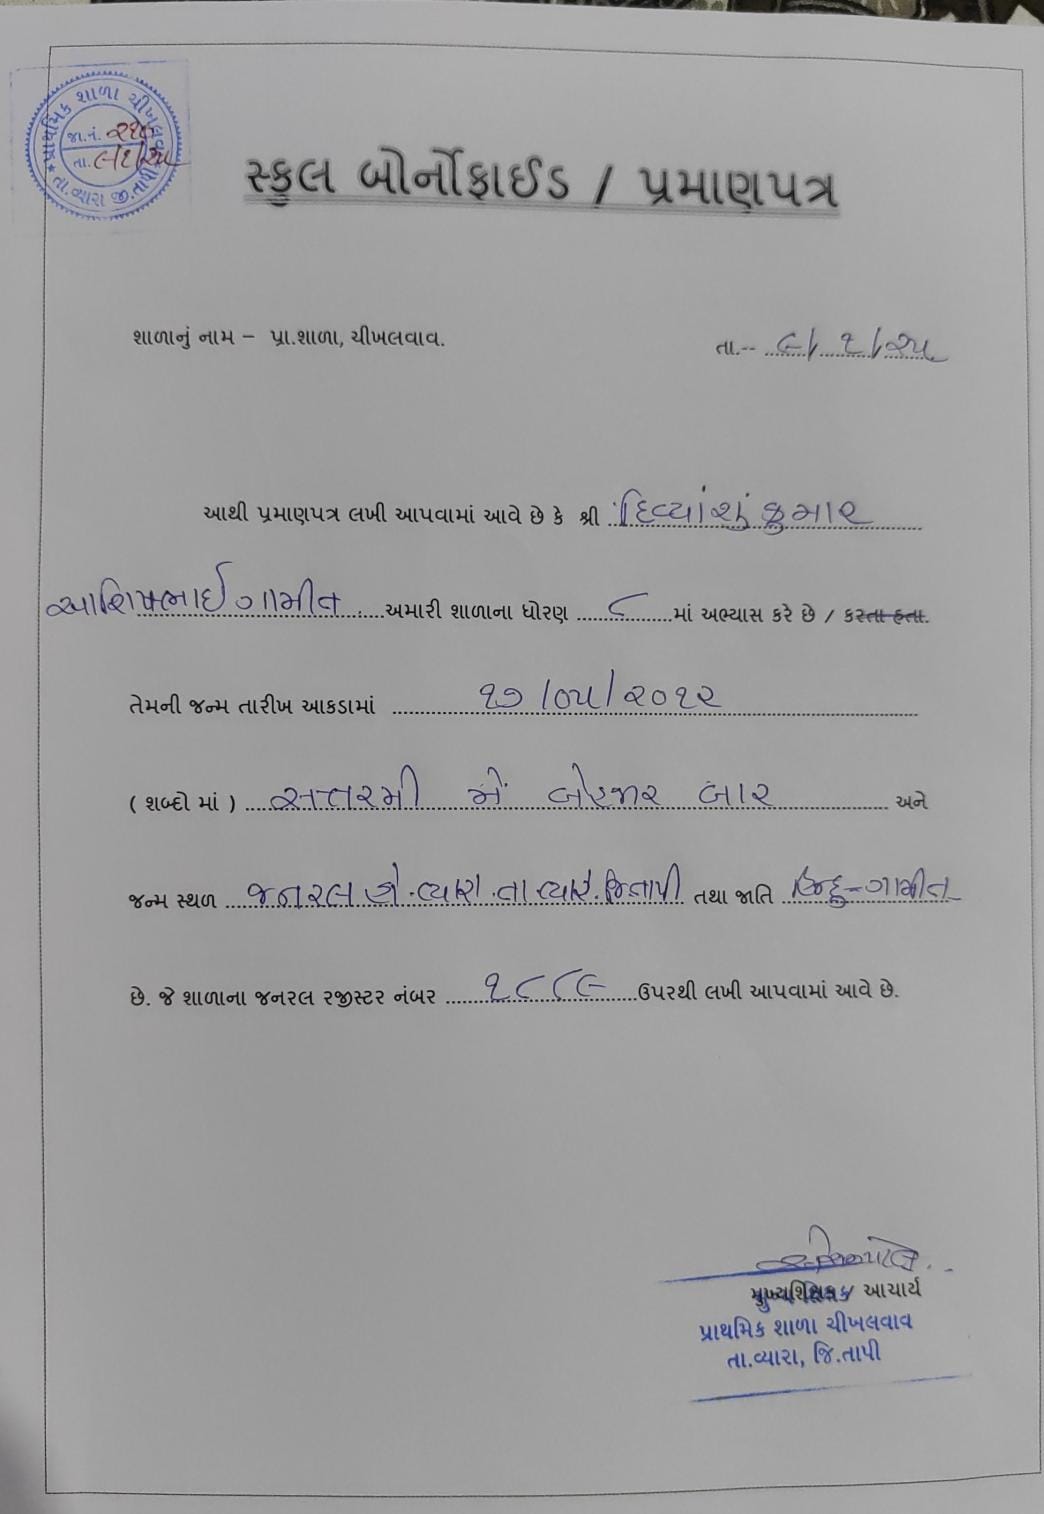 પ્રાથમિક શાળા ચીખલવાવ
જા.નં.
તા. ૯/૧/૨૫
તા.વ્યારા જી.તાપી
સ્કુલ બોર્નોફાઈડ / પ્રમાણપત્ર
શાળાનું નામ – પ્રા.શાળા, ચીખલવાવ.
તા.-- ૯/ ૧/૨૫
આથી પ્રમાણપત્ર લખી આપવામાં આવે છે કે શ્રી દિવ્યાંશું કુમાર
આશિષભાઈ ગામીત અમારી શાળાના ધોરણ ૮ માં અભ્યાસ કરે છે / કરતા હતા.
તેમની જન્મ તારીખ આકડામાં ૧૭/૦૫/૨૦૧૨
( શબ્દો માં ) સત્તરમી મેં બેહજાર બાર અને
જન્મ સ્થળ જનરલ હો.વ્યારા.તા વ્યારા.જિતાપી તથા જાતિ હિન્દુ-ગામીત
છે. જે શાળાના જનરલ રજીસ્ટર નંબર ૧૮૮૯ ઉપરથી લખી આપવામાં આવે છે.
આચાર્ય
પ્રાથમિક શાળા ચીખલવાવ
તા.વ્યારા, જિ.તાપી